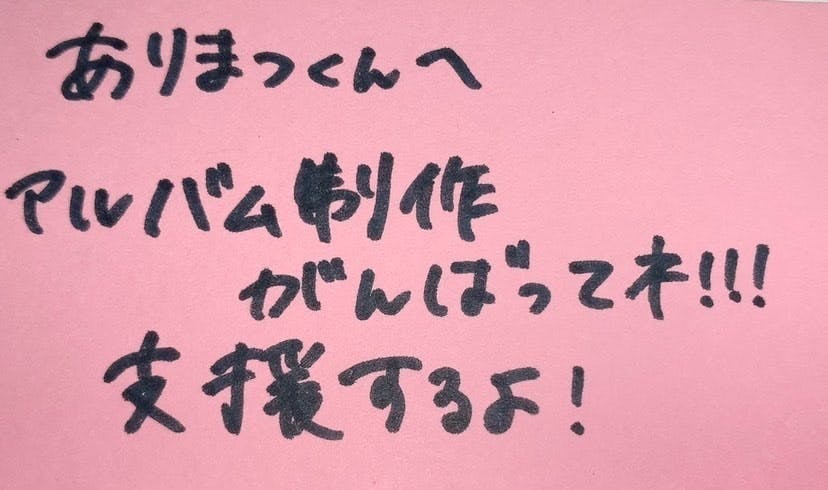 ありまつくんへ
アルバム制作
がんばってネ!!!
支援するよ!